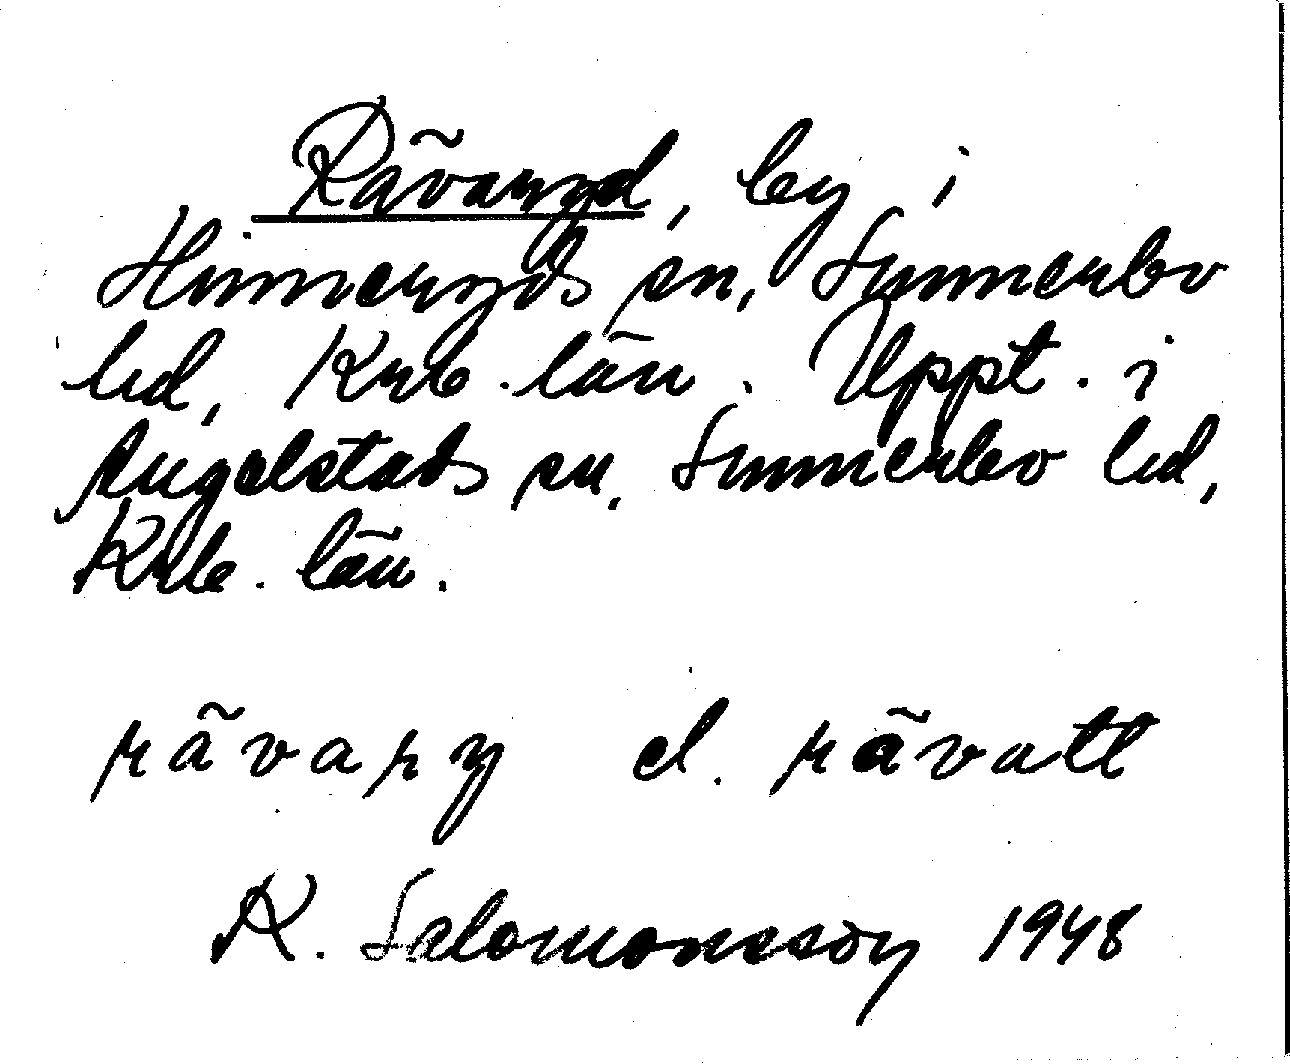 Rävaryd, by i
Hinneryds sn, Sunnerbo
hd, Krb. län. Uppt. i
Angelstads sn, Sunnerbo hd,
Krb. län.
rävary el. rävatt
R. Salomonsson 1948